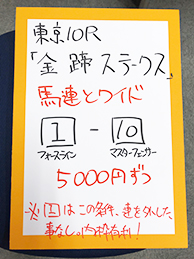 東京10R
「金蹄ステークス」
馬連とワイド
1 - 10
フォースライン マスターフェンサー
5000円ずつ
※1はこの条件、連を外した
事なし。内枠有利!